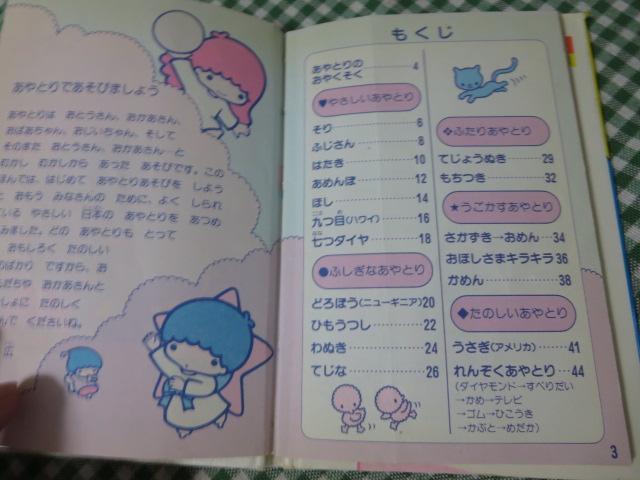 あやとりであそびましょう
あやとりは おとうさん、おかあさん、
おばあちゃん、おじいちゃん、そして
そのまた おとうさん、おかあさん…と
むかし むかしから あった あそびです。この
ほんでは、はじめて あやとりあそびを しよう
と おもう みなさんの ために、よく しられ
ている やさしい 日本の あやとりを あつめ
てみました。どの あやとりも とって
おもしろく たのしい
ものばかり ですから、お
ともだちや おかあさんと
いっしょに たのしく
あそんで くださいね。
広
もくじ
あやとりの
おやくそく 4
♥やさしいあやとり
そり 6
ふじさん 8
はたき 10
あめんぼ 12
ほし 14
九つ目(ハワイ) 16
七つダイヤ 18
●ふしぎなあやとり
どろぼう(ニューギニア) 20
ひもうつし 22
わぬき 24
てじな 26
❖ふたりあやとり
てじょうぬき 29
もちつき 32
★うごかすあやとり
さかずき→おめん 34
おほしさまキラキラ 36
かめん 38
◆たのしいあやとり
うさぎ(アメリカ) 41
れんぞくあやとり 44
(ダイヤモンド→すべりだい
→かめ→テレビ
→ゴム→ひこうき
→かぶと→めだか)
3